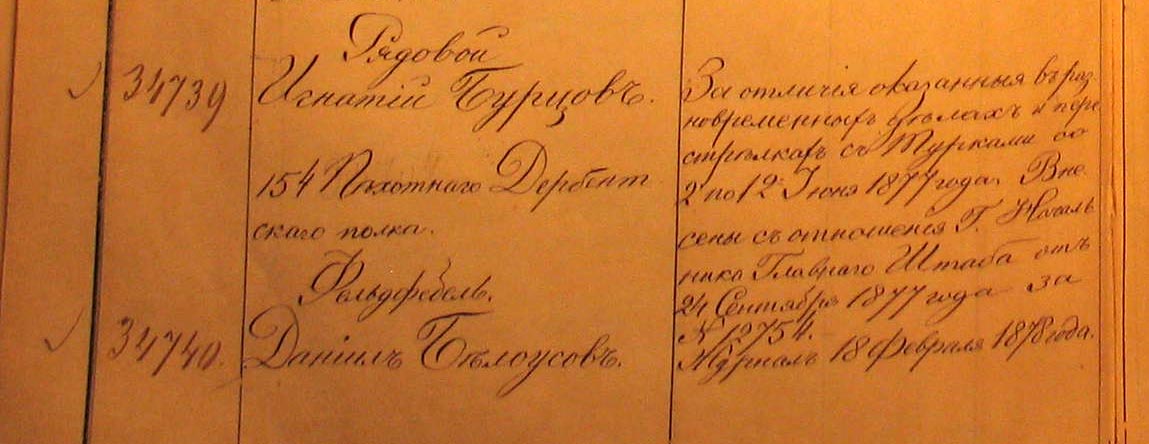 Рядовой
34739 Игнатій Бурцовъ.
154 Пѣхотнаго Дербент
скаго полка.
Фельдфебель.
34740. Даніилъ Бѣлоусовъ.
За отличія оказанныя въ раз-
новременныхъ дѣлахъ и пере
стрѣлкахъ съ Турками со
2 по 12 Іюня 1877 года. Вне
сены съ отношенія Г. Началь
ника Главнаго Штаба отъ
24 Сентября 1877 года за
N 12754.
Журналъ 18 Февраля 1878 года.